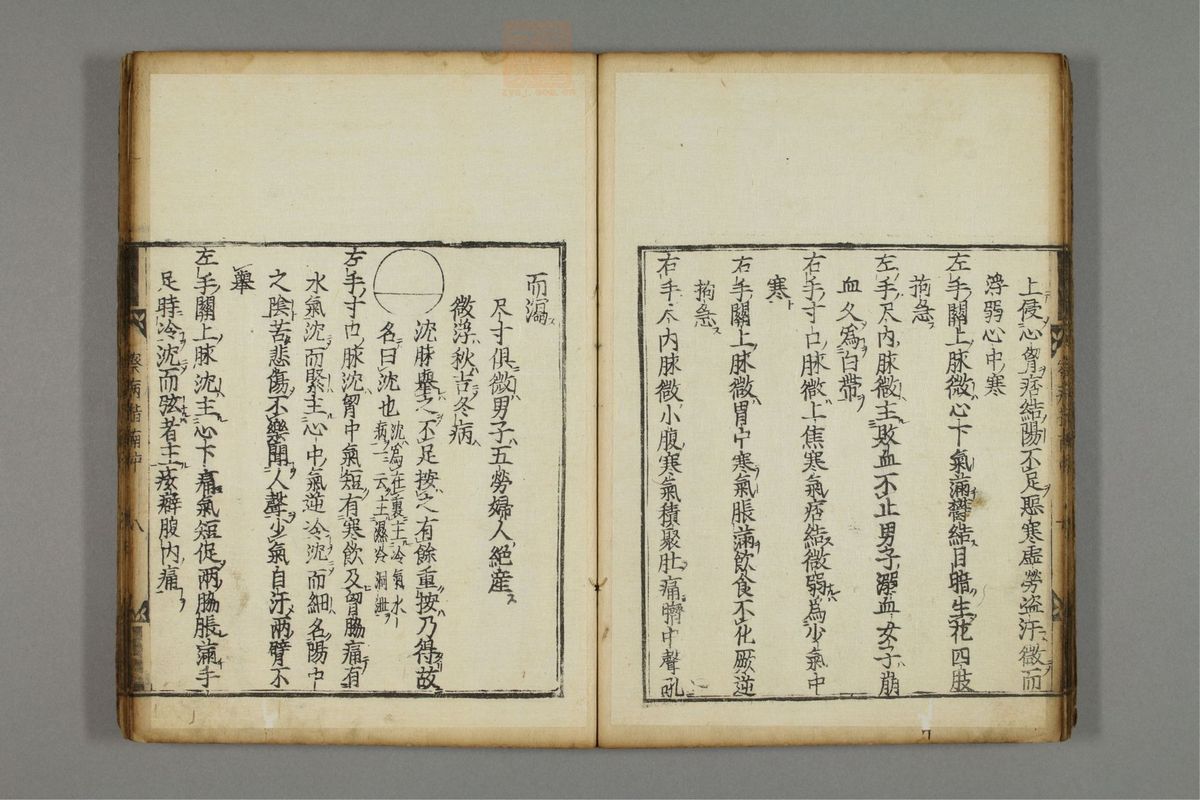 上侵心胷痞結陽不足惡寒虛勞盗汗微而
浮弱心中寒
左手關上脉微心下氣滿欝結目暗生花四肢
拘急
左手尺内脉微主敗血不止男子溺血女子崩
血久爲白帶
右手寸口脉微上焦寒氣痞結微弱爲少氣中
寒
右手關上脉微胃中寒氣脹滿飲食不化厥逆
拘急
右手尺内脉微小腹寒氣積聚肚痛臍中聲吼
而瀉
尺寸俱微男子五勞婦人絶産
微浮秋吉冬病
沈脉舉之不足按之有餘重按乃得故
名曰沈也
沈爲在裏主冷氣水
病一云主濕冷洞泄
左手寸口脉沈胷中氣短有寒飲及胷脇痛有
水氣沈而緊主心中氣逆冷沈而細名陽中
之陰苦悲傷不樂聞人聲少氣自汗兩臂不
舉
左手關上脉沈主心下痛氣短促兩脇脹滿手
足時冷沈而弦者主痃癖腹内痛
察病指南中
八